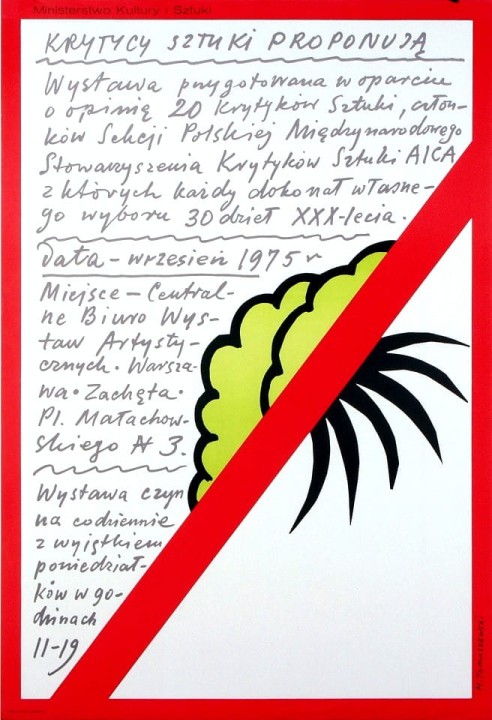 Ministerstwo Kultury i Sztuki
KRYTYCY SZTUKI PROPONUJĄ
Wystawa przygotowana w oparciu
o opinię 20 Krytyków Sztuki, człon-
ków Sekcji Polskiej Międzynarodowego
Stowarzyszenia Krytyków Sztuki AICA
z których każdy dokonał własne-
go wyboru 30 dzieł XXX-lecia.
Data – wrzesień 1975 r
Miejsce – Central-
ne Biuro Wys-
taw Artysty-
cznych · Warsza-
wa · Zachęta ·
Pl. Małachow-
skiego № 3.
Wystawa czyn
na codziennie
z wyjątkiem
poniedział-
ków w go-
dzinach
11-19
H. Tomaszewski